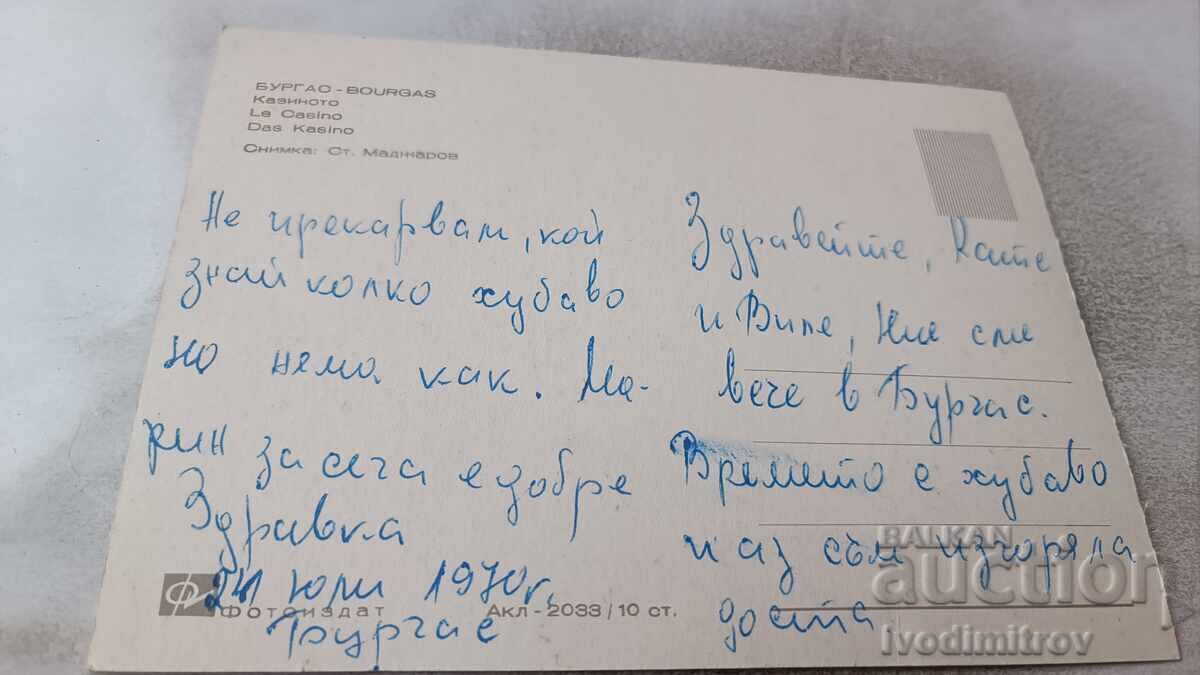 БУРГАС - BOURGAS
Казиното
Le Casino
Das Kasino
Снимка: Ст. Маджаров
Здравейте, Кате
и Виле, Ние сме
вече в Бургас.
Времето е хубаво
и аз съм изгоряла
доста
Не прекарвам, кой
знай колко хубаво
но нема как. Ма-
рин за сега е добре
Здравка
24 юли 1970г.
Бургас
Фотоиздат
Акл - 2033 / 10 ст.
BALKAN
auction
Ivodimitrov